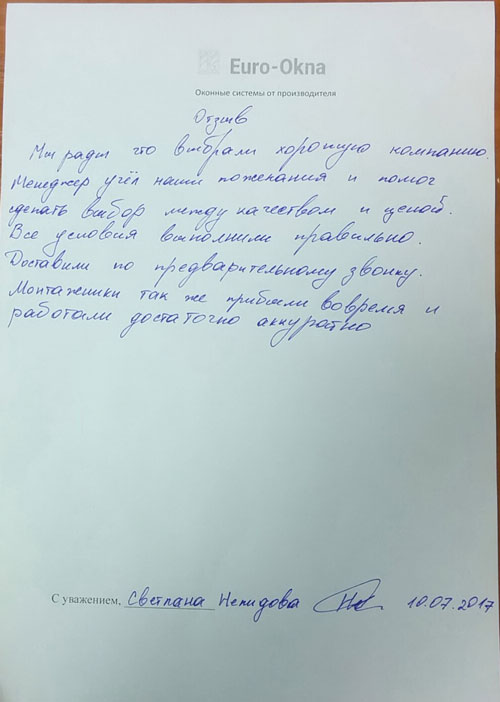 Euro-Okna
Оконные системы от производителя
Отзыв
Мы рады что выбрали хорошую компанию.
Менеджер учёл наши пожелания и помог
сделать выбор между качеством и ценой.
Все условия выполнили правильно.
Доставили по предварительному звонку.
Монтажники так же прибыли вовремя и
работали достаточно аккуратно
С уважением, Светлана Нелидова 10.07.2017